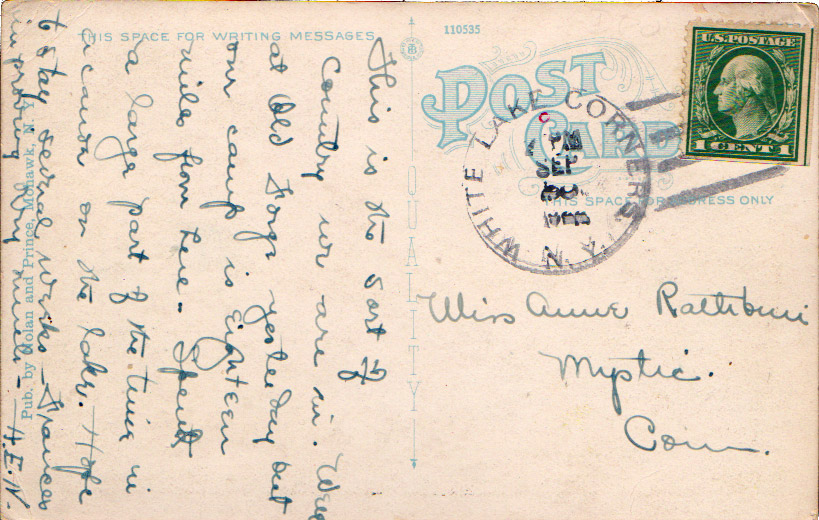 THIS SPACE FOR WRITING MESSAGES
110535
POST CARD
THIS SPACE FOR ADDRESS ONLY
QUALITY
U.S. POSTAGE
1 CENT 1
WHITE LAKE CORNERS
N.Y.
PM
SEP
Miss Anne Rathbun
Mystic.
Conn.
This is the sort of
Country we are in. Were
at Old Forge yesterday but
our camp is eighteen
miles from here. Spend
a large part of the time in
a canoe on the lake. Hope
to stay several weeks - Frances
improving very much - H.E.N.
Pub. by Nolan and Prince, Mohawk, N. Y.